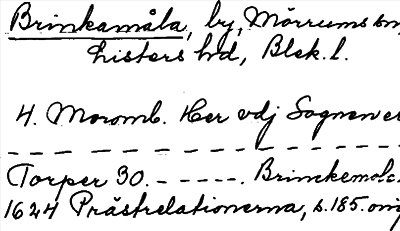 Brinkamåla, by, Mörrums sn,
Listers hd, Blek. l.
4. Moromb. Her vdj Sognen er
Torper 30. - - - - - . Brinckemole.
1624 Prästrelationerna, s. 185. orig